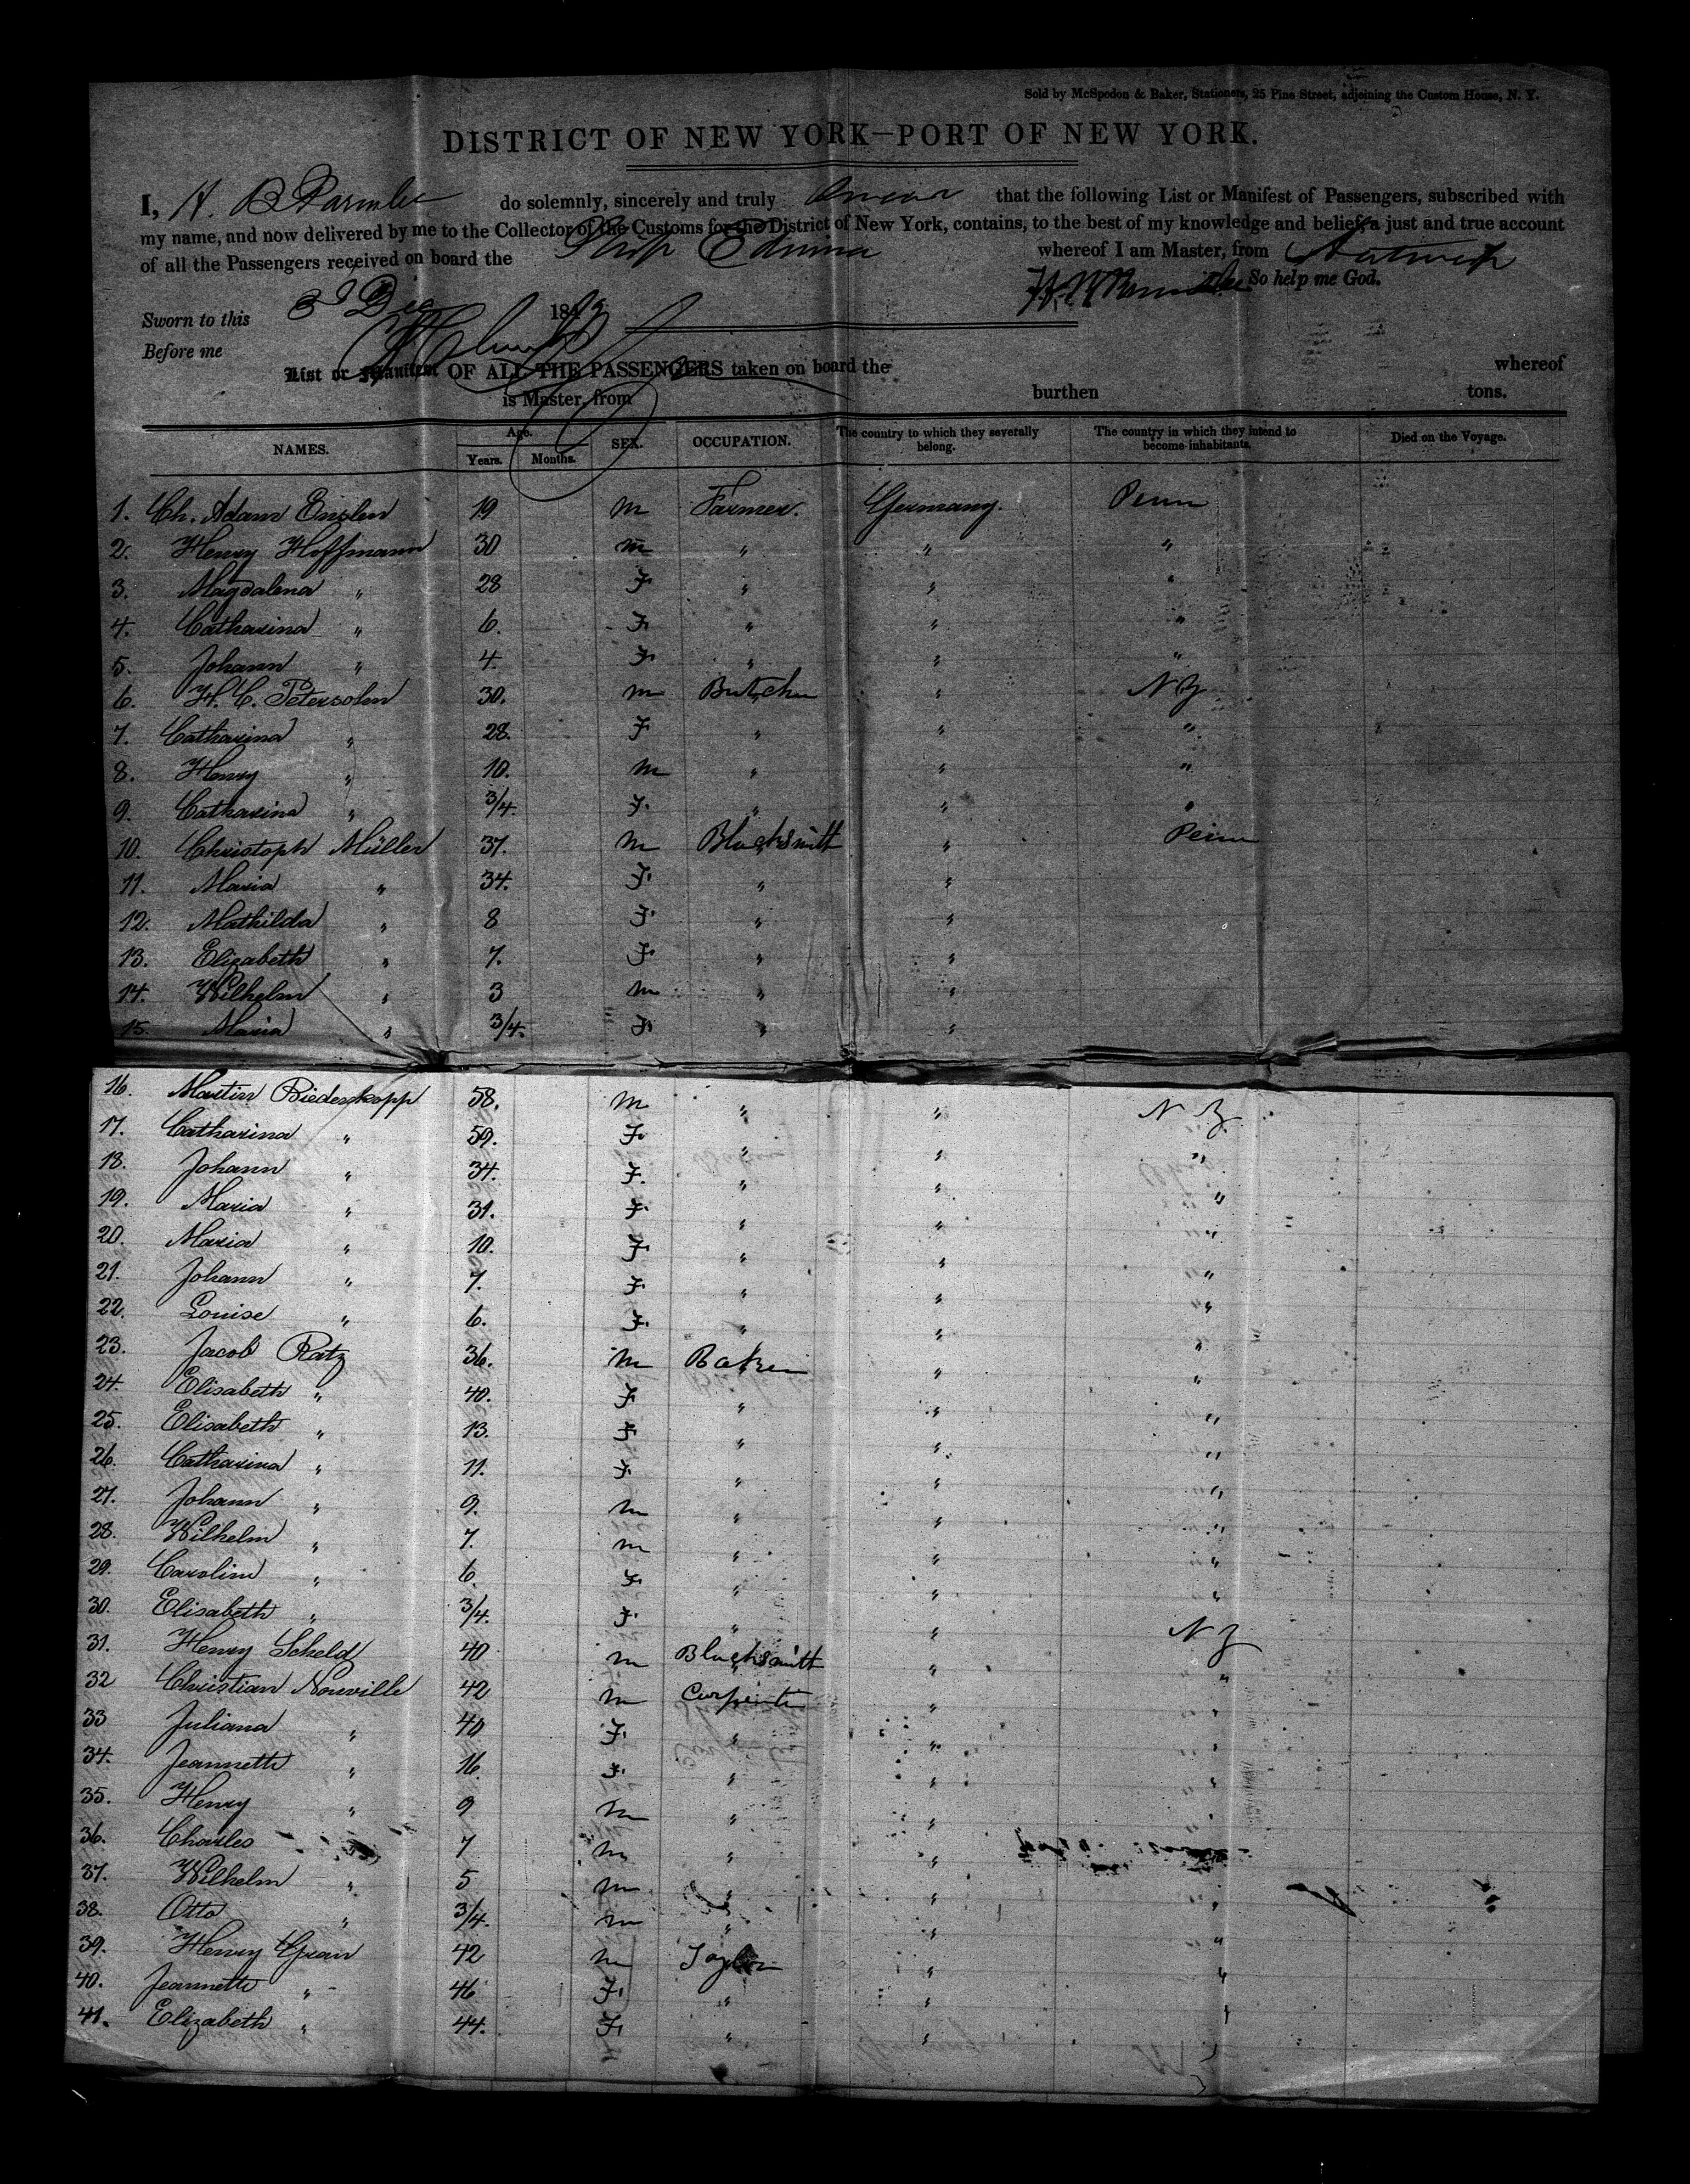 Sold by McSpedon & Baker, Stationers, 25 Pine Street, adjoining the Custom House, N. Y.
DISTRICT OF NEW YORK—PORT OF NEW YORK.
I, H. B Parmlee do solemnly, sincerely and truly swear that the following List or Manifest of Passengers, subscribed with
my name, and now delivered by me to the Collector of the Customs for the District of New York, contains, to the best of my knowledge and belief, a just and true account
of all the Passengers received on board the Ship Edwina whereof I am Master, from Antwerp
So help me God.
Sworn to this 3d Dec 184
Before me
List or Manifest OF ALL THE PASSENGERS taken on board the whereof
is Master, from burthen tons.
NAMES. Age. Years. Months. SEX. OCCUPATION. The country to which they severally belong. The country in which they intend to become inhabitants. Died on the Voyage.
1. Ch. Adam Enslen 19 M Farmer. Germany. Penn
2. Henry Hoffmann 30 M " " "
3. Magdalena " 28 F. " " "
4. Catharina " 6. F. " " "
5. Johann " 4. F. " " "
6. H. C. Petersohn 30. M Butcher " N Y
7. Catharina " 28. F. " " "
8. Henry " 10. M " " "
9. Catharina " 3/4. F. " " "
10. Christoph Müller 37. M Blacksmitt " Penn
11. Maria " 34. F. " "
12. Mathilda " 8 F. " "
13. Elizabeth " 7. F. " "
14. Wilhelm " 3 M " "
15. Maria " 3/4. F. " "
16. Martin Biedenkopp 58. M " " N Y.
17. Catharina " 59. F. " " "
18. Johann " 34. F. " " "
19. Maria " 31. F. " " "
20. Maria " 10. F. " " "
21. Johann " 7. F. " " "
22. Louise " 6. F. " " "
23. Jacob Ratz 36. M Baker " "
24. Elisabeth " 40. F. " " "
25. Elisabeth " 13. F. " " "
26. Catharina " 11. F. " " "
27. Johann " 9. M " " "
28. Wilhelm " 7. M " " "
29. Carolina " 6. F. " " "
30. Elisabeth " 3/4. F. " "
31. Henry Scheld 40 M Blacksmitt " N Y
32 Christian Nouville 42 M Carpenter " "
33 Juliana " 40 F. " " "
34. Jeannette " 16. F. " " "
35. Henry " 9 M " " "
36. Charles 7 M " "
37. Wilhelm " 5 M " " "
38. Otto " 3/4. M " " "
39. Henry Gran 42 M Taylor " "
40. Jeannette " 46 F. " " "
41. Elizabeth " 44. F. " "